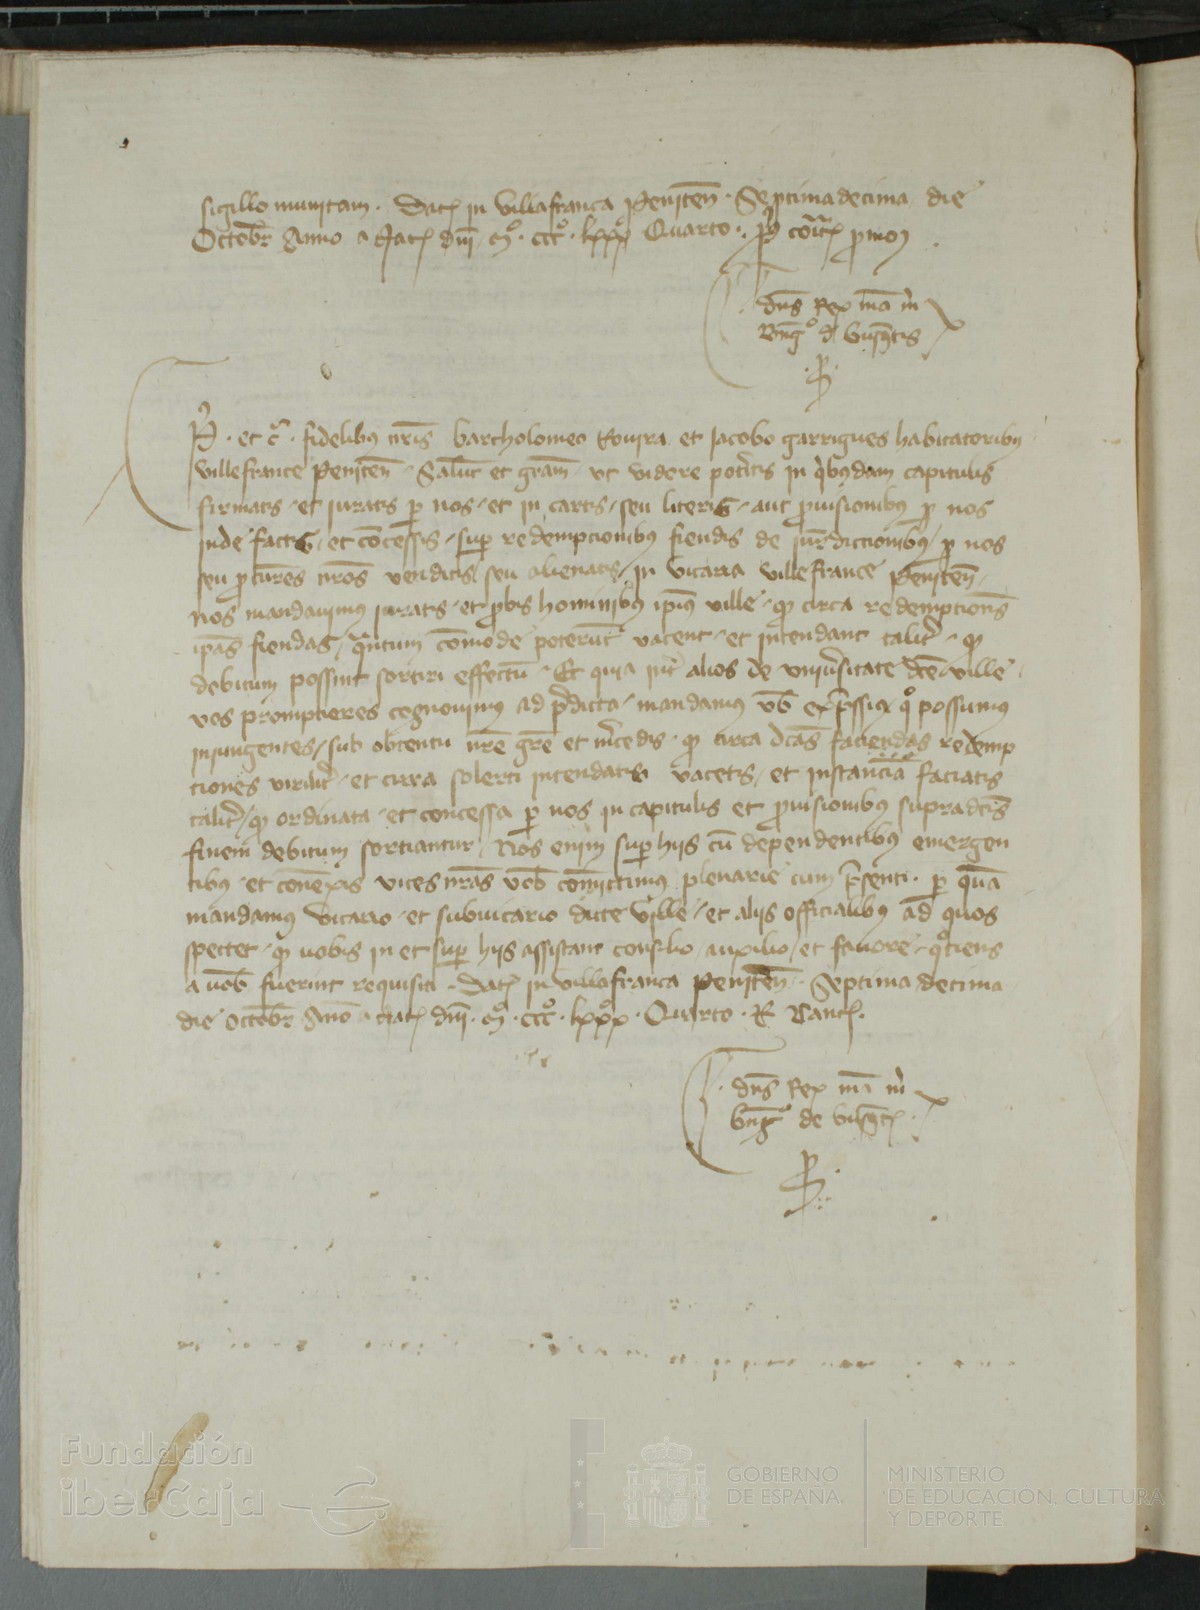 sigillo munitam. Dat̃ in Villafranca Peniteñ. Septima decima die
Octobr̃ Anno a Nat̃ dñi Mº. CCCº. Lxxxº Quarto.
dñs Rex mã m̃
Bñgº d̃
P. et cª. fidelibus nr̃is bartholomeo Rovira et Jacobo garrigues habitatoribus
villefrance Peniteñ. Salut̃ et grãm. ut videre potĩtis in q̃busdam capitulis
firmatis et iuratis p nos et in cartis seu literis aut p̃uisionibus p nos
inde factis et cõcessis sup redempcionibus fiendis de iur̃dictionibus p nos
seu p̃cur̃es nr̃os venditis seu alienatis in vicaria villefrance Peniteñ
nos mandauimus iuratis et p̃bis hominibus ip̃ius ville q̃ circa redemptiones
ip̃as fiendas q̃ntum cõmode poterũt vacent et intendant talit̃ q̃
debitum possint sortiri effectũ. Et quia int̃ alios de uniũsitate dc̃e ville
vos promptiores cognouimus ad p̃dicta mandamus vob̃ exp̃ssius qº possumus
iniungentes sub obtentu nr̃e gr̃e et m̃cedis q̃ circa dc̃as faciendas redemp
tiones virilit̃ et cura solerti intendatis vacetis et instancia faciatis
talit̃ q̃ ordinata et concessa p nos in capitulis et p̃uisionibus supradc̃is
finem debitum sortiantur. Nos enim sup hiis cũ dependentibus emergen
tibus et conexis vices nr̃as vob̃ comittimus plenarie cum p̃senti. p quã
mandamus vicario et subuicario dicte ville et aliis officialibus ad quos
spectet q̃ uobis in et sup hiis assistant consilio auxilio et fauore q̃ciens
a uob̃ fuerint requisiti. Dat̃ in villafranca Peniteñ. Septima decima
die Octobr̃ Anõ a Nat̃ dñi. Mº. CCCº. Lxxxº. Quarto.
dñs Rex mã m̃
bñgº de
Fundación
iberCaja
GOBIERNO
DE ESPAÑA
MINISTERIO
DE EDUCACIÓN, CULTURA
Y DEPORTE